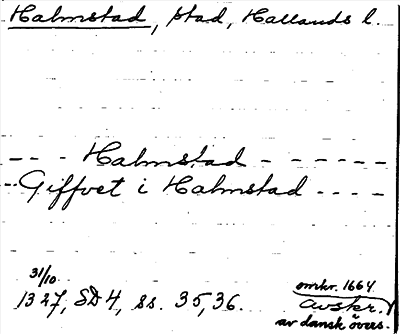 Halmstad, stad, Hallands l.
-- - Halmstad - - - - - -
-- Giffvet i Halmstad - - - -
31/10
1327, SD 4, ss. 35, 36.
omkr. 1664
avskr.
av dansk övers.